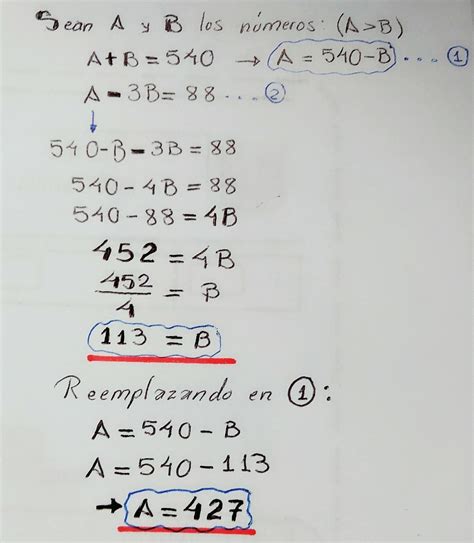 Sean A y B los números: (A>B)
A+B=540 → A = 540-B ... ①
A-3B=88 ... ②
540-B-3B=88
540-4B=88
540-88=4B
452=4B
452/4 = B
113 = B
Reemplazando en ①:
A=540-B
A=540-113
→ A=427